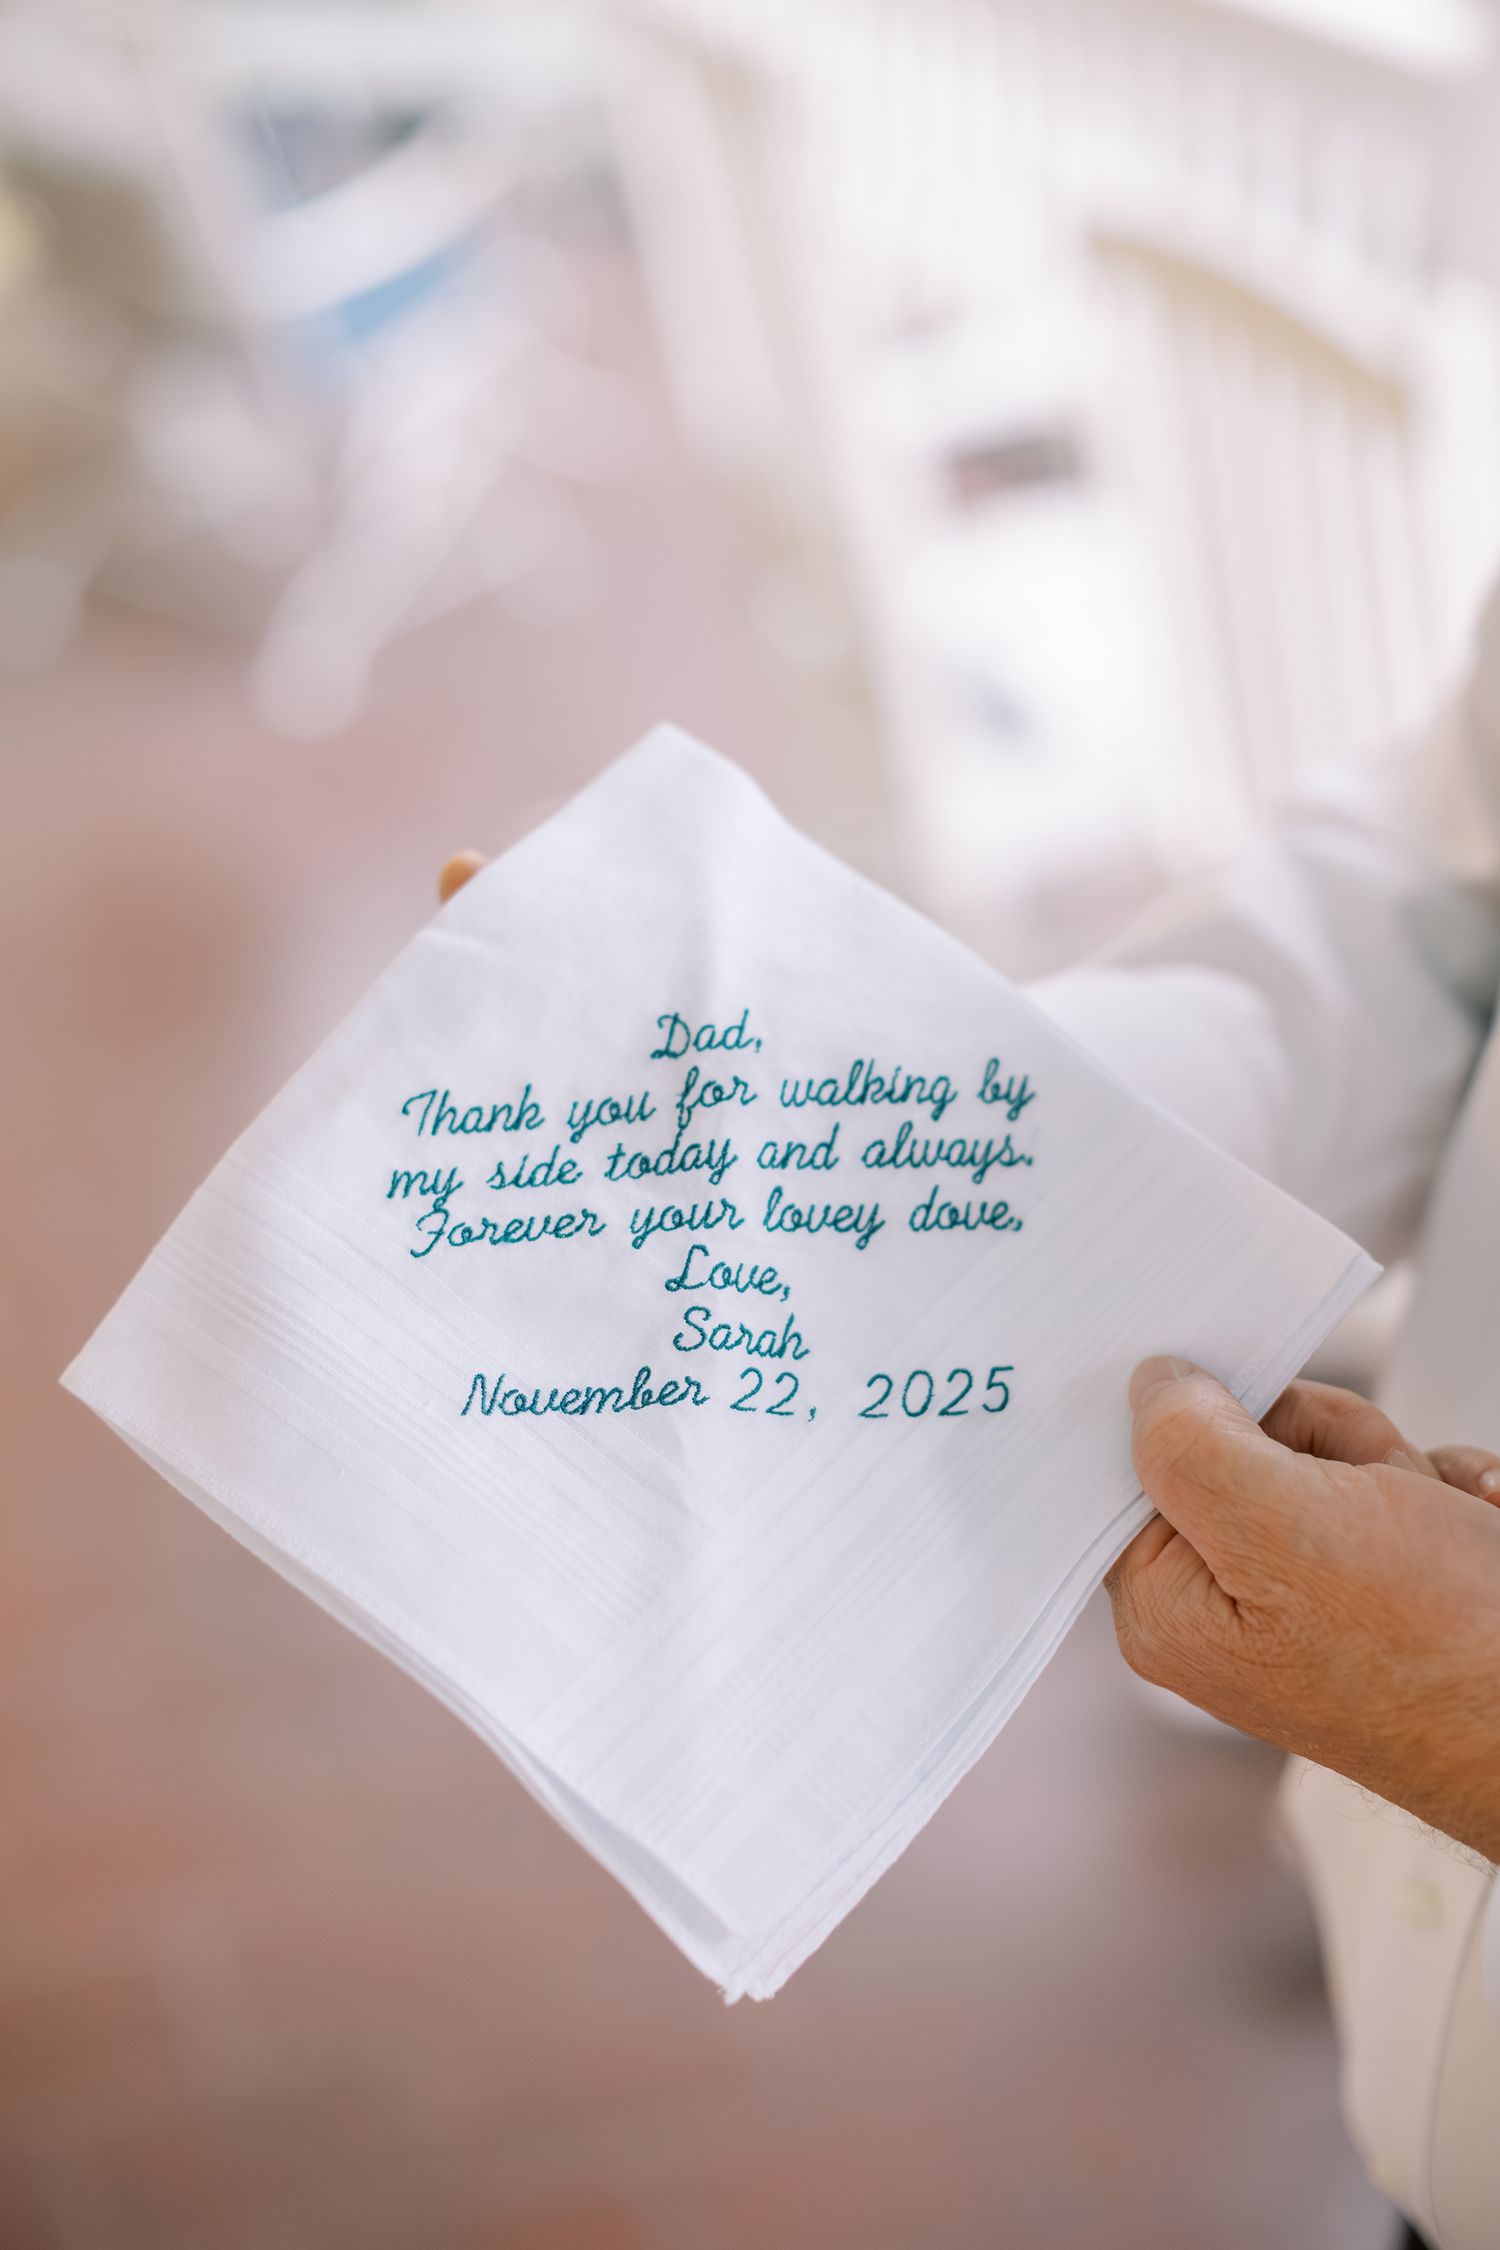 Dad,
Thank you for walking by
my side today and always.
Forever your lovey dove,
Love,
Sarah
November 22, 2025